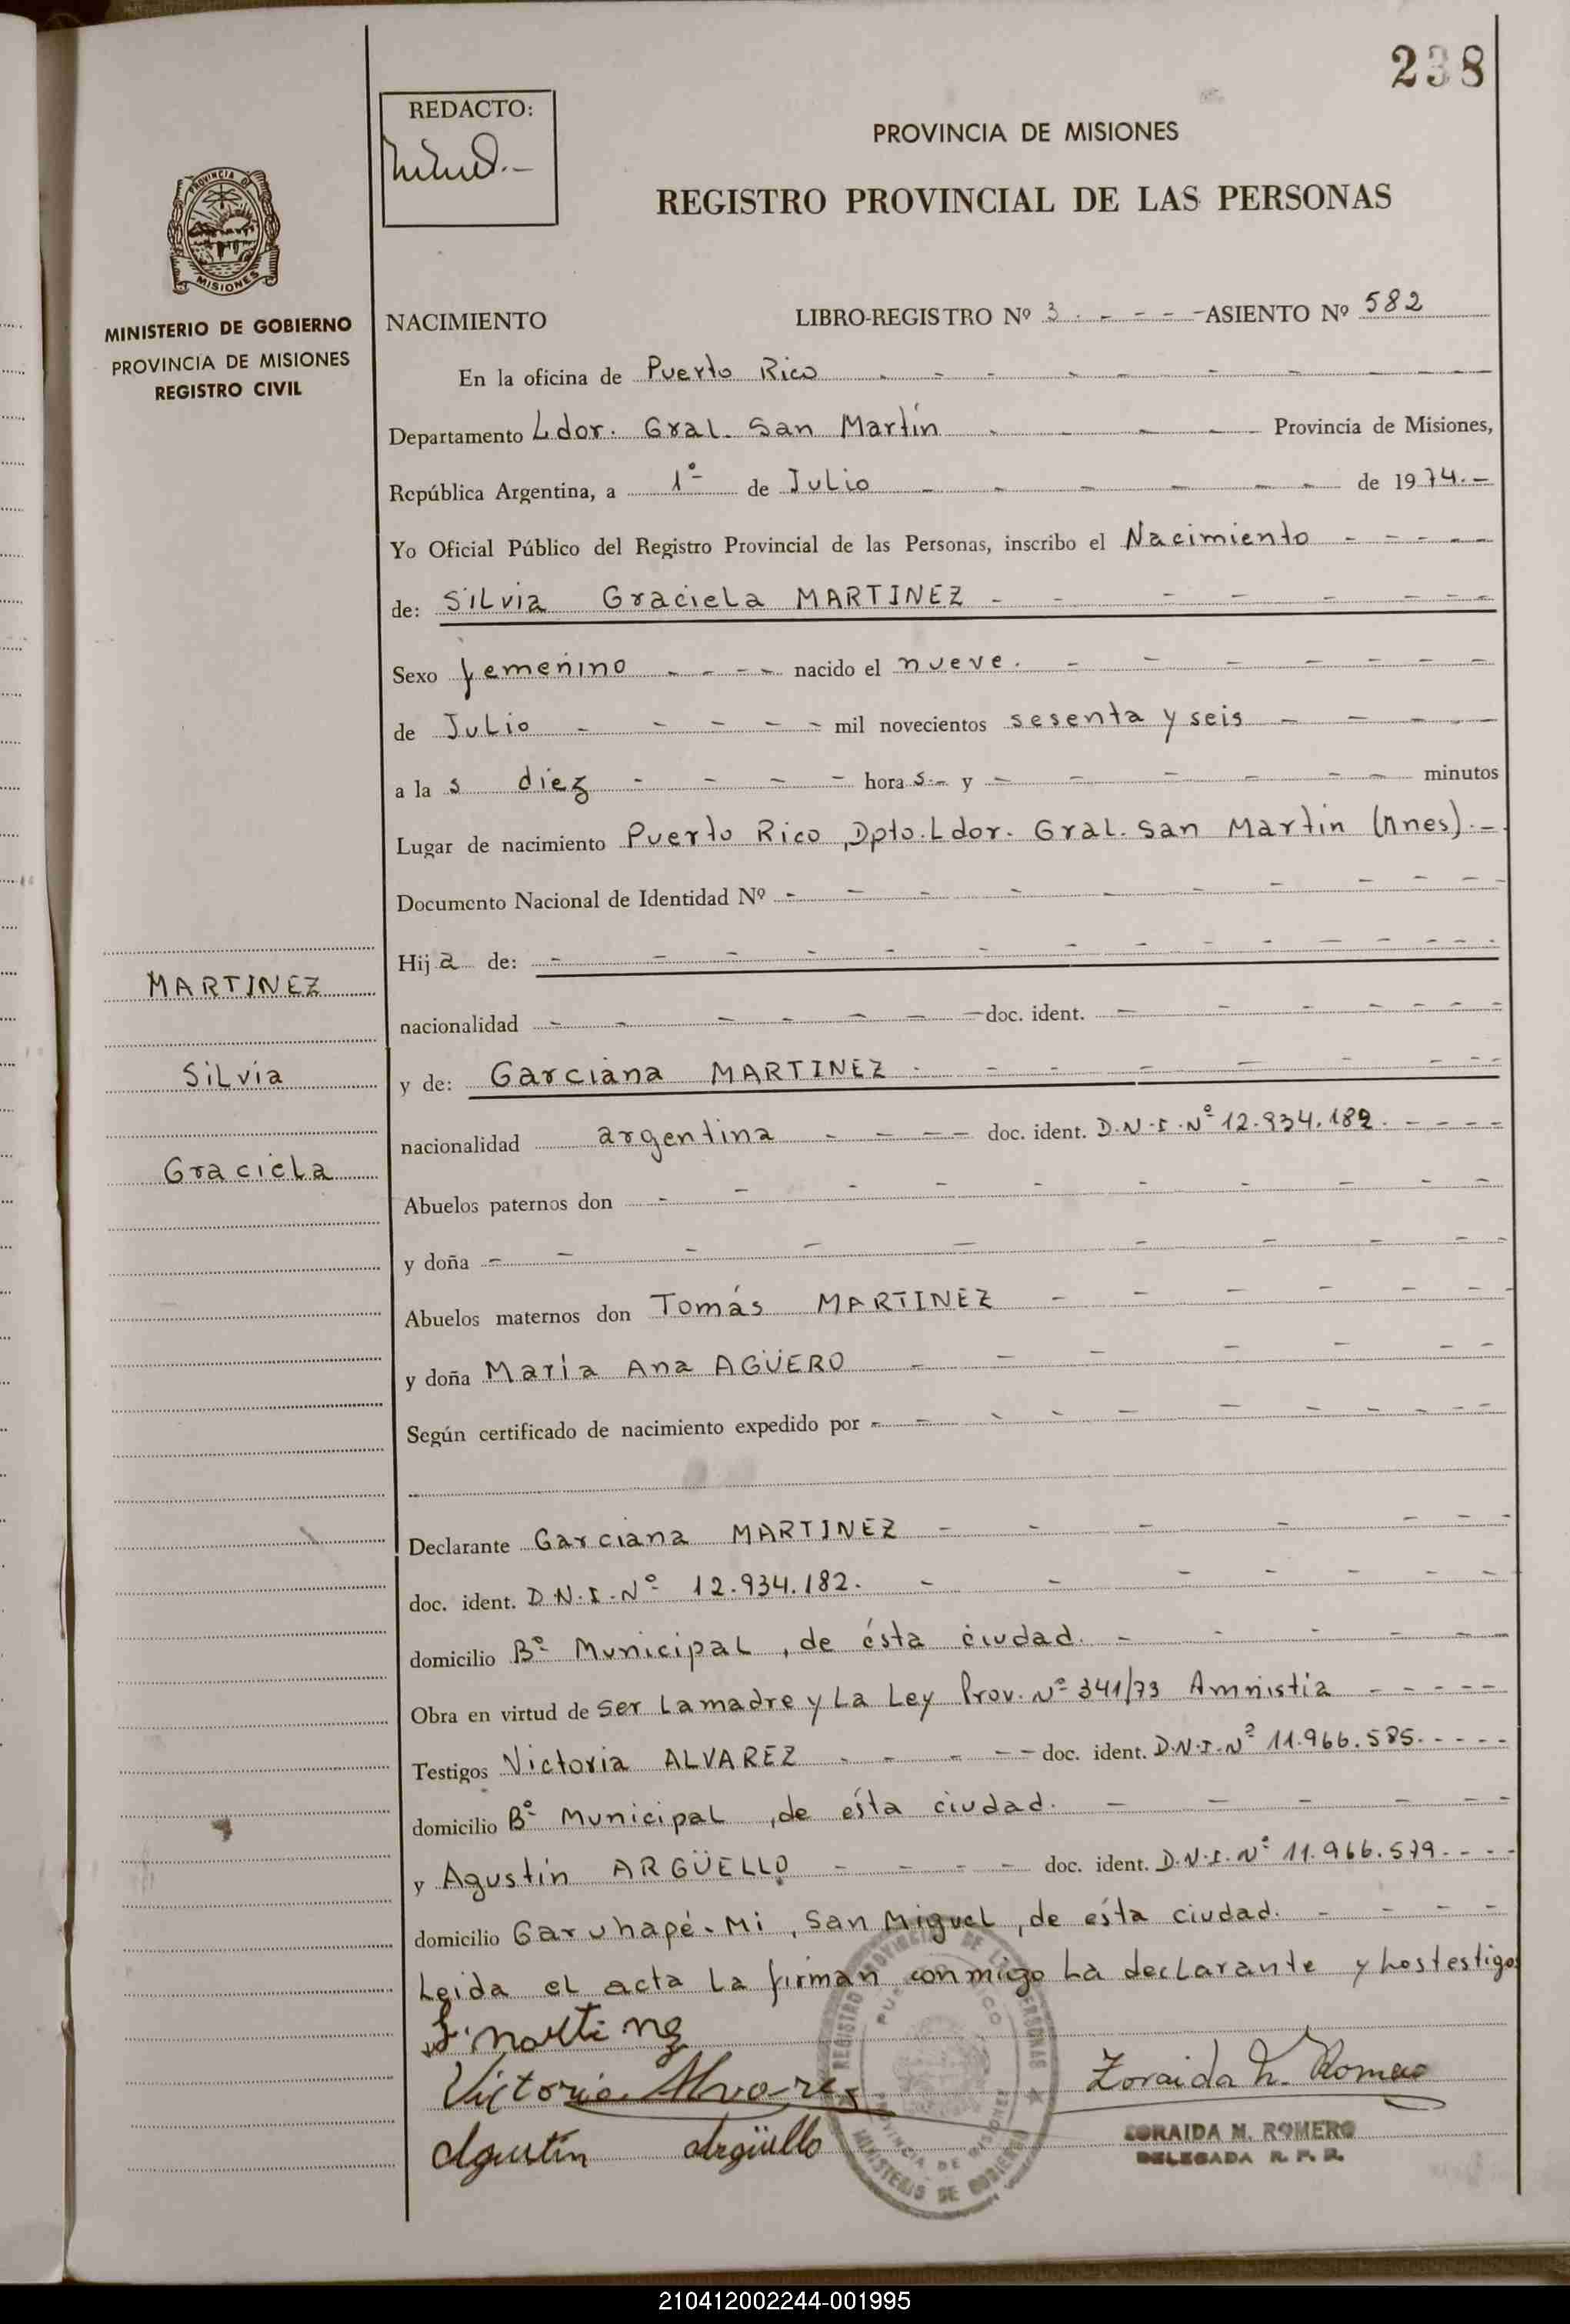 238
REDACTO:
PROVINCIA DE MISIONES
REGISTRO PROVINCIAL DE LAS PERSONAS
PROVINCIA DE
MISIONES
MINISTERIO DE GOBIERNO
PROVINCIA DE MISIONES
REGISTRO CIVIL
NACIMIENTO LIBRO-REGISTRO Nº 3. - - - - ASIENTO Nº 582
En la oficina de Puerto Rico
Departamento Ldor. Gral. San Martín Provincia de Misiones,
República Argentina, a 1º de Julio de 1974.-
Yo Oficial Público del Registro Provincial de las Personas, inscribo el Nacimiento
de: Silvia Graciela MARTINEZ
Sexo femenino nacido el nueve.
de Julio mil novecientos sesenta y seis
a la s diez hora s.- y - minutos
Lugar de nacimiento Puerto Rico, Dpto. Ldor. Gral. San Martin (Mnes).-
Documento Nacional de Identidad Nº -
Hij a de: -
nacionalidad - doc. ident. -
y de: Garciana MARTINEZ
nacionalidad argentina doc. ident. D.N.I. Nº 12.934.182.
Abuelos paternos don -
y doña -
Abuelos maternos don Tomás MARTINEZ
y doña María Ana AGÜERO
Según certificado de nacimiento expedido por -
Declarante Garciana MARTINEZ
doc. ident. D.N.I. Nº 12.934.182.
domicilio Bº Municipal, de ésta ciudad.
Obra en virtud de ser la madre y La Ley Prov. Nº 341/73 Amnistia
Testigos Victoria ALVAREZ doc. ident. D.N.I. Nº 11.966.585.
domicilio Bº Municipal, de ésta ciudad.
y Agustín ARGÜELLO doc. ident. D.N.I. Nº 11.966.579.
domicilio Garuhapé-Mi, San Miguel, de ésta ciudad.
Leida el acta la firman conmigo La declarante y Los testigos
MARTINEZ
Silvia
Graciela
Victoria Alvarez
Agustín Argüello
Zoraida M. Romero
ZORAIDA M. ROMERO
DELEGADA R. P. P.
REGISTRO PROVINCIAL DE LAS PERSONAS
PUERTO RICO
PROVINCIA DE MISIONES
MINISTERIO DE GOBIERNO
210412002244-001995